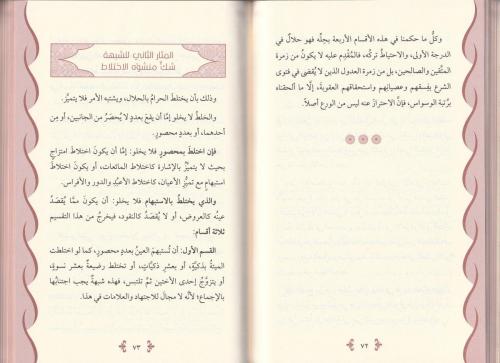 وكلُّ ما حكمنا في هذه الأقسام الأربعة بحِلِّه فهو حلالٌ في
الدرجة الأولى، والاحتياطُ تركُه، فالمُقدِم عليه لا يكونُ من زمرة
المتَّقين والصالحين، بل من زمرة العدول الذين لا يُقضى في فتوى
الشرع بفِسقهم وعصيانِهم واستحقاقِهم العقوبةَ، إلَّا ما ألحقناه
برُتبة الوسواس، فإنَّ الاحترازَ عنه ليس من الورع أصلاً.
٧٢
المثار الثاني للشبهة
شكٌّ منشؤه الاختلاط
وذلك بأن يختلطَ الحرامُ بالحلال، ويشتبه الأمر فلا يتميَّز.
والخلطُ لا يخلو إمَّا أن يقعَ بعددٍ لا يُحصَرُ من الجانبين، أو مِن
أحدهما، أو بعددٍ محصورٍ.
فإن اختلط بمحصورٍ فلا يخلو: إمَّا أن يكونَ اختلاطَ امتزاجٍ
بحيث لا يتميَّزُ بالإشارة كاختلاط المائعات، أو يكونَ اختلاطَ
استبهامٍ مع تميُّز الأعيان، كاختلاط الأعبُدِ والدور والأفراس.
والذي يختلطُ بالاستبهام فلا يخلو: أن يكونَ ممَّا يُقصَدُ
عينُه كالعروض، أو لا يُقصَدُ كالنقود، فيخرجُ من هذا التقسيم
ثلاثة أقسام:
القسم الأول: أن تُستبهمَ العينُ بعددٍ محصورٍ، كما لو اختلطت
الميتةُ بذكيَّةٍ، أو بعشرِ ذكيَّاتٍ، أو تختلط رضيعةٌ بعشر نسوةٍ،
أو يتزوَّج إحدى الأختين ثمَّ تلتبس، فهذه شبهةٌ يجب اجتنابُها
بالإجماع؛ لأنَّه لا مجالَ للاجتهاد والعلامات في هذا.
٧٣